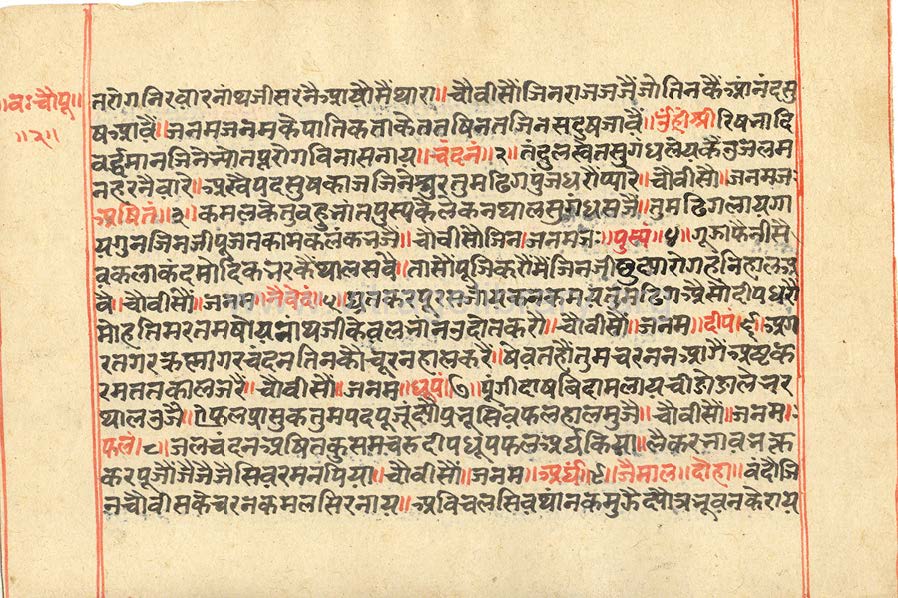 वः चौपू॥
॥२॥
तरोगनिरवारनांथजीसरनैआयौमैंथारा॥चौवीसौंजिनराजजजैंजोतिनकैंआनंदसु
षआवैं॥जनमजनमकेपातिकताकेततषिनतजिनसदुषजावैं॥उँहीश्रीरिषभादि
वर्द्धमानजिनेन्द्रोत्पूरोगविनासनाय॥चंदनं॥२॥तंदुलस्वेतसुगंधलेयकैंउजलम
नहरनैवारे॥अखैपदसुषकाजजिनेसुरतुमढिगपुंजधरौंप्यारे॥चौवीसौं॥जनमजः
अषितं॥३॥कमलकेतुवहुभांतपुस्पकैलेकनथालसुगंधसजै॥तुमढिगलायगा
यगुनजिनजीपूजतकामकलंकभजै॥चौवीसौंजिन॥जनमजः॥पुस्पं॥४॥गूंजाफैनीसे
वकलाकंदमोदिकभरकैंथालसवै॥तासौंपूजिकरौंमैंजिनजीछुद्यारोगहनिहालअ
वै॥चौवीसौं॥जनम॥नैवेदं॥५॥घृतकरपूरसजौयकनकमयतुमढिगअैसोदीपधरौं
मोहतिमरतमषोयनांथजीकेवलज्ञांनउदोतकरौ॥चौवीसौं॥जनम॥दीप॥६॥अग
रतगरक्रस्नागरचंदनतिनकौचूरनहालकरै॥षेवतहौंतुमचरननआगैंअष्टक
रमततकालजरैं॥चौवीसौं॥जनम॥धूपं॥७॥पुंगीदाषविदामलायचीडोडालेभर
थालउजै॥फलप्रासुकतुमपदपूजूंद्यौप्रभूसिवफलहालमुजै॥चौवीसौं॥जनम॥
फलं॥८॥जलचंदनअषितकुसमचरुदीपधूपफलअर्घकिया॥लेकरनावभक्त
करपूजौंजैजैजैसिवरमनपिया॥चौवीसौं॥जनम॥अर्घं॥९॥जैमाल॥दोहा॥वंदौंजि
नचौवीसकेचरनकमलसिरनाय॥अविचलसिवथांनकमुकैद्यौत्रभूवनकेराय